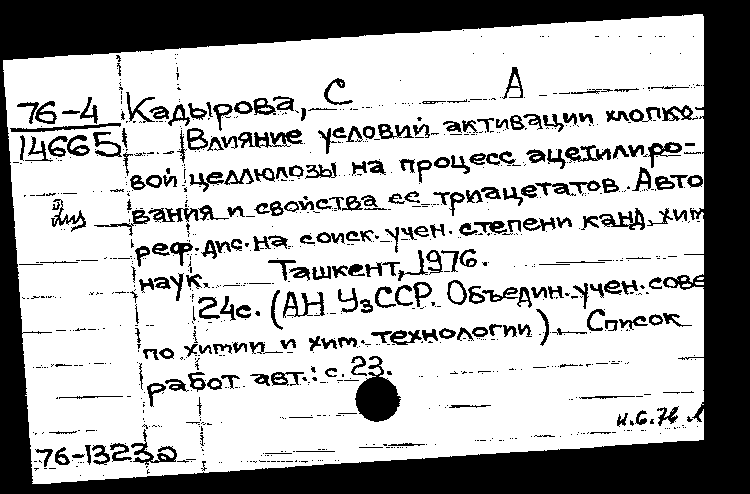 76-4 Кадырова, С А
14665 Влияние условий активации хлопко-
вой целлюлозы на процесс ацетилиро-
вания и свойства ее триацетатов. Авто
реф. дис. на соиск. учен. степени канд. хим
наук. Ташкент, 1976.
24с. (АН УзССР. Объедин. учен. сове
по химии и хим. технологии). Список
работ авт.: с. 23.
76-1323